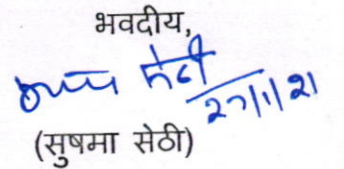 भवदीय,
सेठी
27/1/21
(सुषमा सेठी)